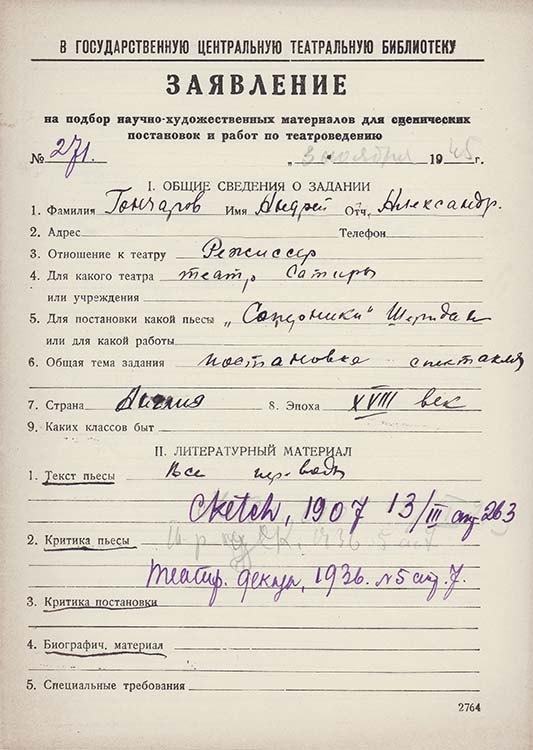 В ГОСУДАРСТВЕННУЮ ЦЕНТРАЛЬНУЮ ТЕАТРАЛЬНУЮ БИБЛИОТЕКУ
ЗАЯВЛЕНИЕ
на подбор научно-художественных материалов для сценических
постановок и работ по театроведению
№ 271. „ 3 ноября 1945 г.
I. ОБЩИЕ СВЕДЕНИЯ О ЗАДАНИИ
1. Фамилия Гончаров Имя Андрей Отч. Александр.
2. Адрес Телефон
3. Отношение к театру Режиссер
4. Для какого театра театр Сатиры
или учреждения
5. Для постановки какой пьесы „Соперники" Шеридан
или для какой работы
6. Общая тема задания постановка спектакля
7. Страна Англия 8. Эпоха XVIII век
9. Каких классов быт
II. ЛИТЕРАТУРНЫЙ МАТЕРИАЛ
1. Текст пьесы Все переводы
Sketch, 1907 13/III стр 263
2. Критика пьесы 1936 5
Театр. декада, 1936. №5 стр. 7.
3. Критика постановки
4. Биографич. материал
5. Специальные требования
2764